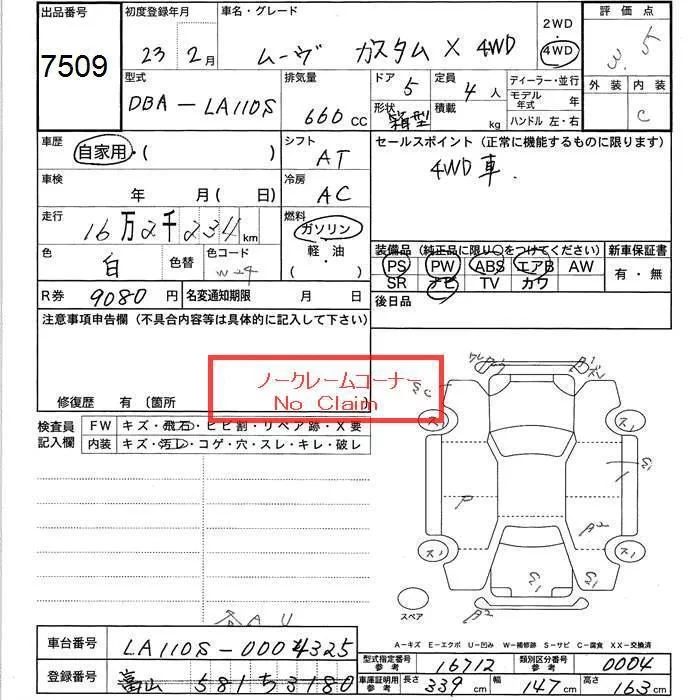 出品番号 初度登録年月 車名・グレード 2WD 評価点
7509 23年2月 ムーヴ カスタム X 4WD 4WD 3.5
型式 排気量 ドア 定員 ディーラー・並行 外装 内装
DBA-LA110S 660cc 5 4人 モデル年式 年 C
形状 箱型 積載 kg ハンドル 左・右
車歴 シフト セールスポイント(正常に機能するものに限ります)
自家用・( ) AT 4WD車.
車検 冷房
年 月(日) AC
走行 燃料
16万2千234km ガソリン
色 色替 色コード 軽・油 装備品(純正品に限り○をつけてください) 新車保証書
白 W24 ( ) PS PW ABS エアB AW 有・無
R券 9080円 名変通知期限 月 日 SR ナビ TV カワ
注意事項申告欄(不具合内容等は具体的に記入して下さい) 後日品
ノークレームコーナー
No Claim
修復歴 有 〔箇所 〕
検査員記入欄 FW キズ・飛石・ヒビ割・リペア跡・X要
内装 キズ・汚レ・コゲ・穴・スレ・キレ・破レ
ス1 ス1
S1
P
A2
ス1 ス1
S1 S1
スペア A2
A-キズ E-エクボ U-凹み W-補修跡 S-サビ C-腐食 XX-交換済
車台番号 LA110S-0004325 型式指定番号 参考 16712 類別区分番号 参考 0004
登録番号 富山 581ち3180 車庫証明用 参考 長さ 339cm 幅 147cm 高さ 163cm